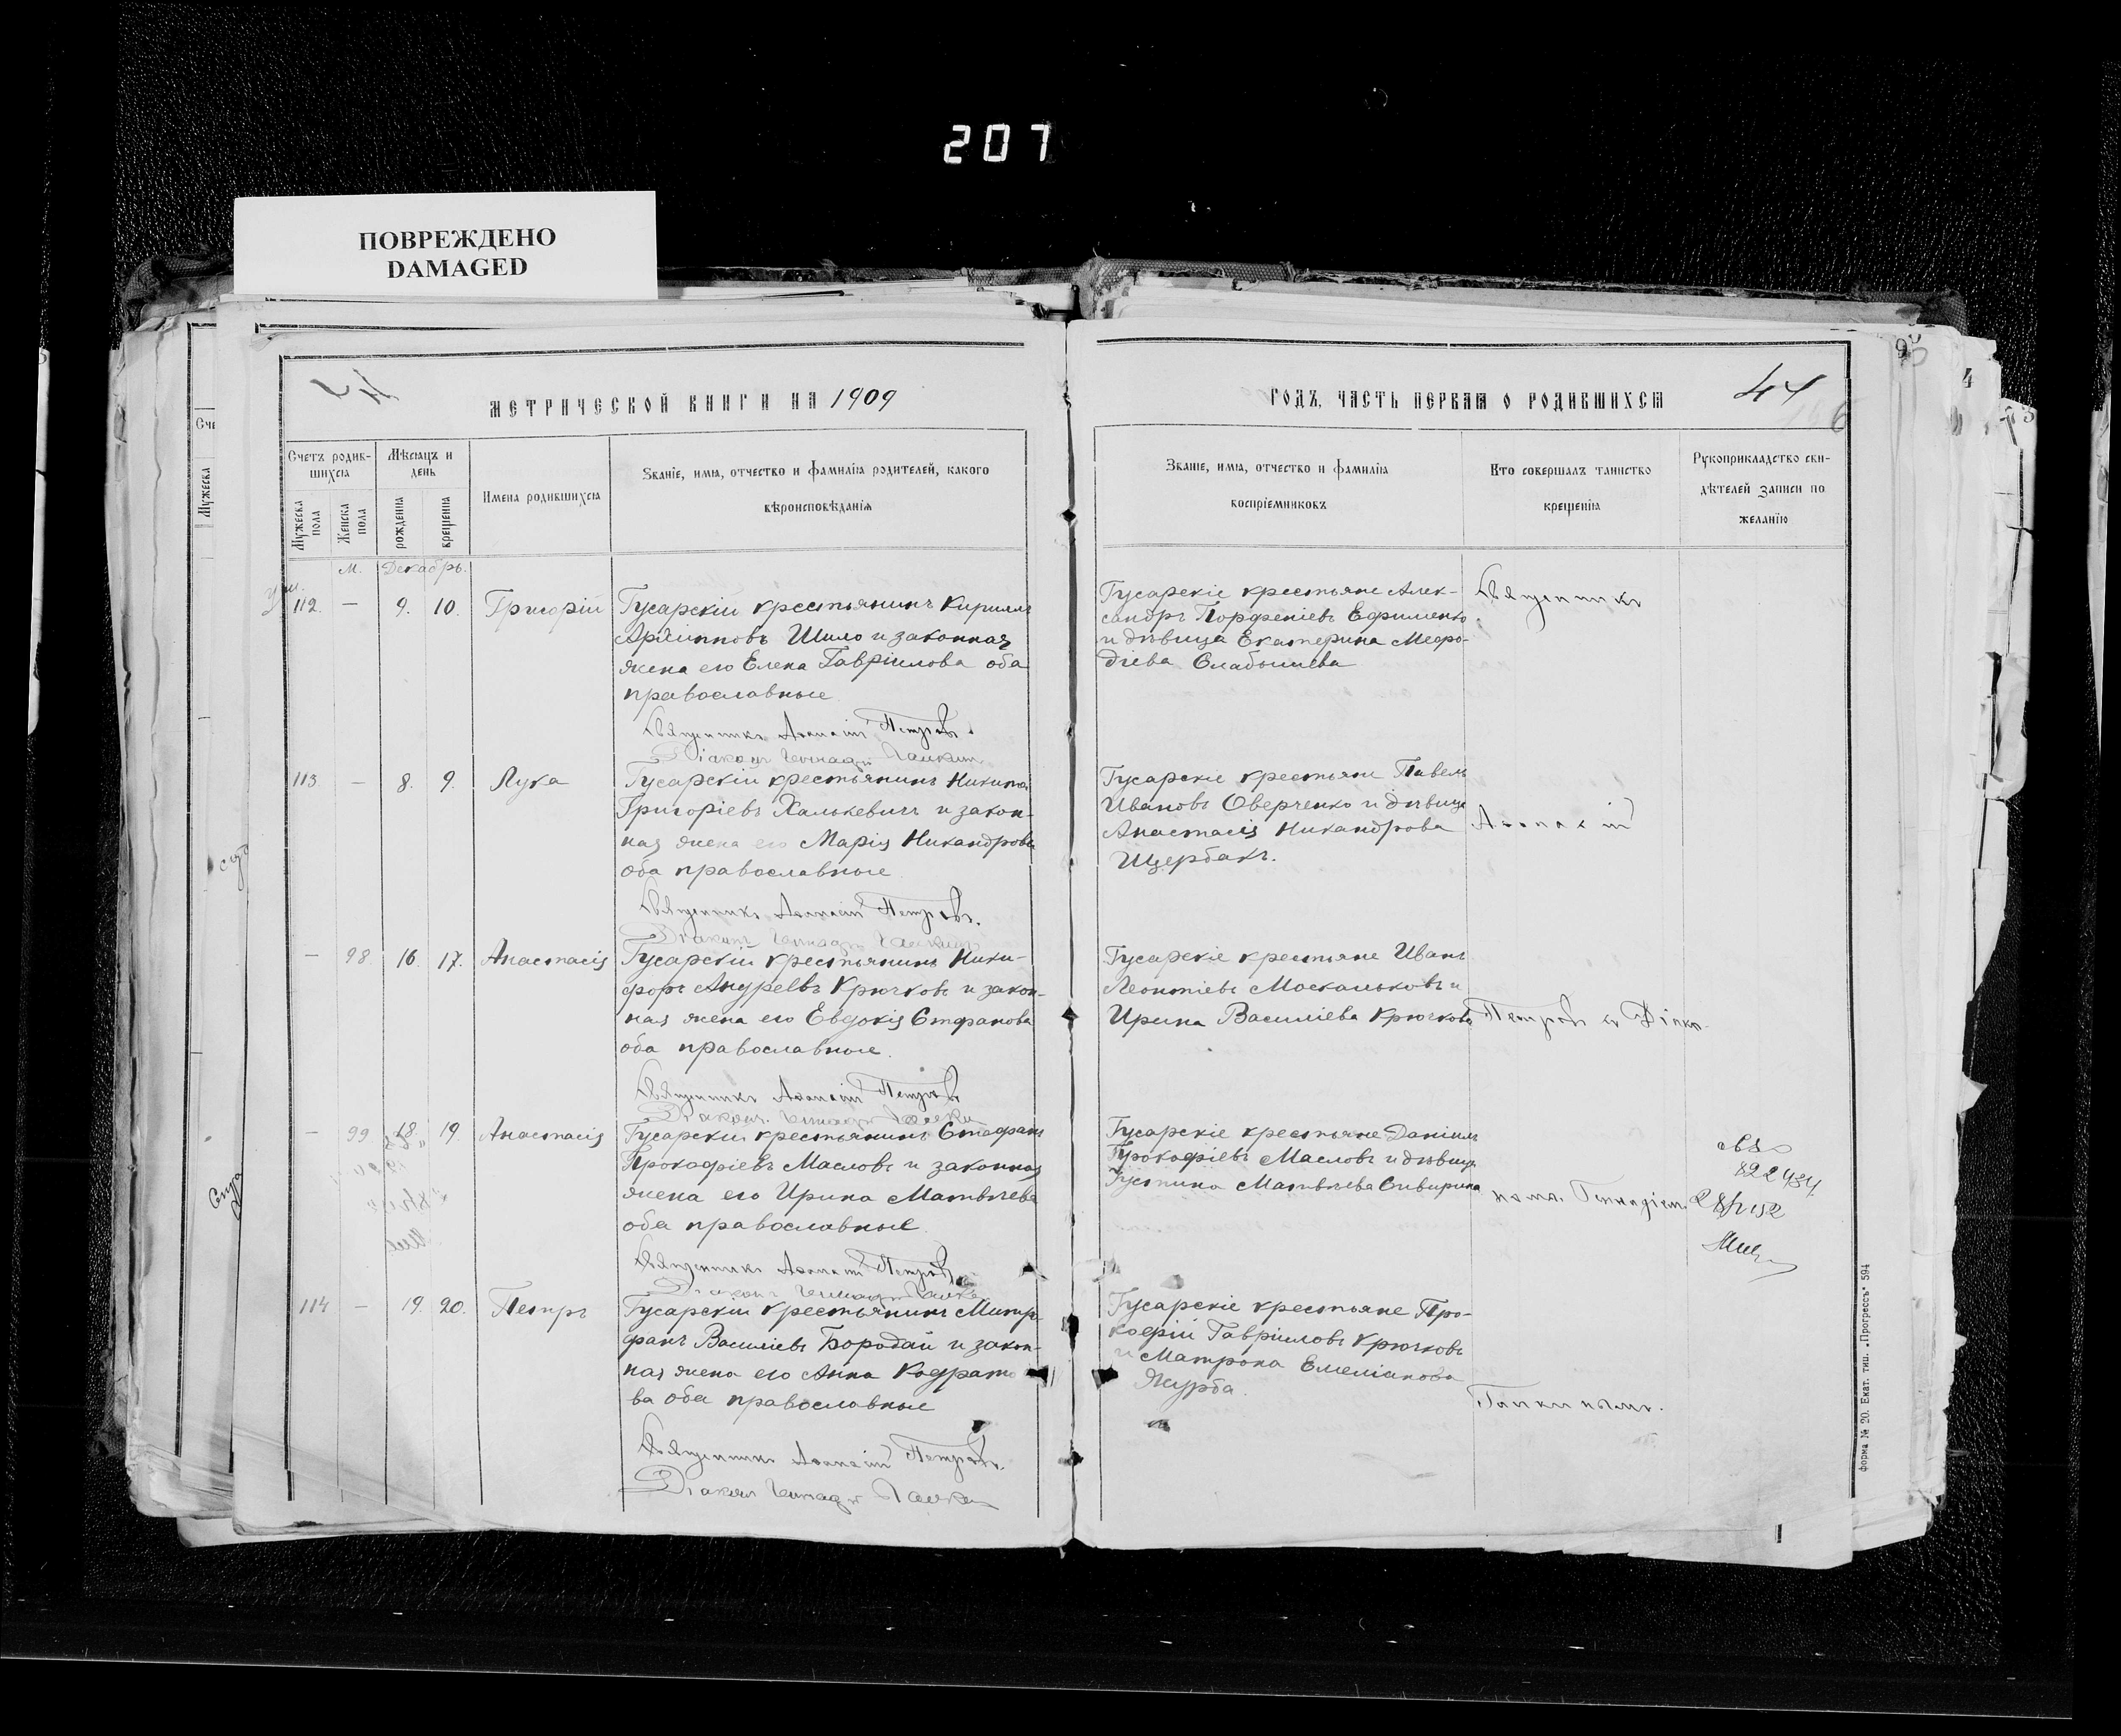 207
ПОВРЕЖДЕНО
DAMAGED
МЕТРИЧЕСКОЙ КНИГИ НА 1909
ГОДЪ, ЧАСТЬ ПЕРВАЯ О РОДИВШИХСЯ
44
Счетъ родившихся
Мужеска пола
Женска пола
Мѣсяцъ и день
рожденія
крещенія
Имена родившихся
Званіе, имя, отчество и фамилія родителей, какого
вѣроисповѣданія
Званіе, имя, отчество и фамилія
воспріемниковъ
Кто совершалъ таинство
крещенія
Рукоприкладство сви-
дѣтелей записи по
желанію
М. Декабрь.
112. — 9. 10. Григорій
Гусарскій крестьянинъ Кириллъ
Архиповъ Шило и законная
жена его Елена Гавріилова оба
православные
Священникъ Аѳанасій Петровъ.
Діаконъ Геннадій Галкинъ
Гусарскіе крестьяне Алек-
сандръ Порфеніевъ Ефименко
и дѣвица Екатерина Меѳо-
діева
Священникъ
113 — 8. 9. Лука
Гусарскій крестьянинъ Никита
Григоріевъ Халькевичъ и закон-
ная жена его Марія Никандрова
оба православные
Священникъ Аѳанасій Петровъ.
Діаконъ Геннадій Галкинъ
Гусарскіе крестьяне Павелъ
Ивановъ Оверченко и дѣвица
Анастасія Никандрова
Щербакъ.
Аѳанасій
— 98 16 17. Анастасія
Гусарскій крестьянинъ Ники-
форъ Андреевъ Крючковъ и закон-
ная жена его Евдокія Стефанова
оба православные.
Священникъ Аѳанасій Петровъ
Діаконъ Геннадій Галкинъ
Гусарскіе крестьяне Иванъ
Леонтіевъ Маскальковъ и
Ирина Василіева Крючкова
Петровъ съ Діако-
— 99 18 19. Анастасія
Гусарскій крестьянинъ Стефанъ
Прокофіевъ Масловъ и законная
жена его Ирина Матвѣева
оба православные.
Священникъ Аѳанасій Петровъ
Діаконъ Геннадій Галкинъ
Гусарскіе крестьяне Даніилъ
Прокофіевъ Масловъ и дѣвица
Іустина Матвѣева Сивирина
номъ Геннадіемъ
114 — 19. 20. Петръ
Гусарскій крестьянинъ Митро
фанъ Василіевъ Бородай и закон-
ная жена его Анна Кодрато
ва оба православные
Священникъ Аѳанасій Петровъ.
Діаконъ Геннадій Галкинъ
Гусарскіе крестьяне Про-
кофій Гавріиловъ Крючковъ
и Матрона Емеліанова
Журба.
Галкинымъ.
Форма № 20. Екат. тип. „Прогрессъ“ 594